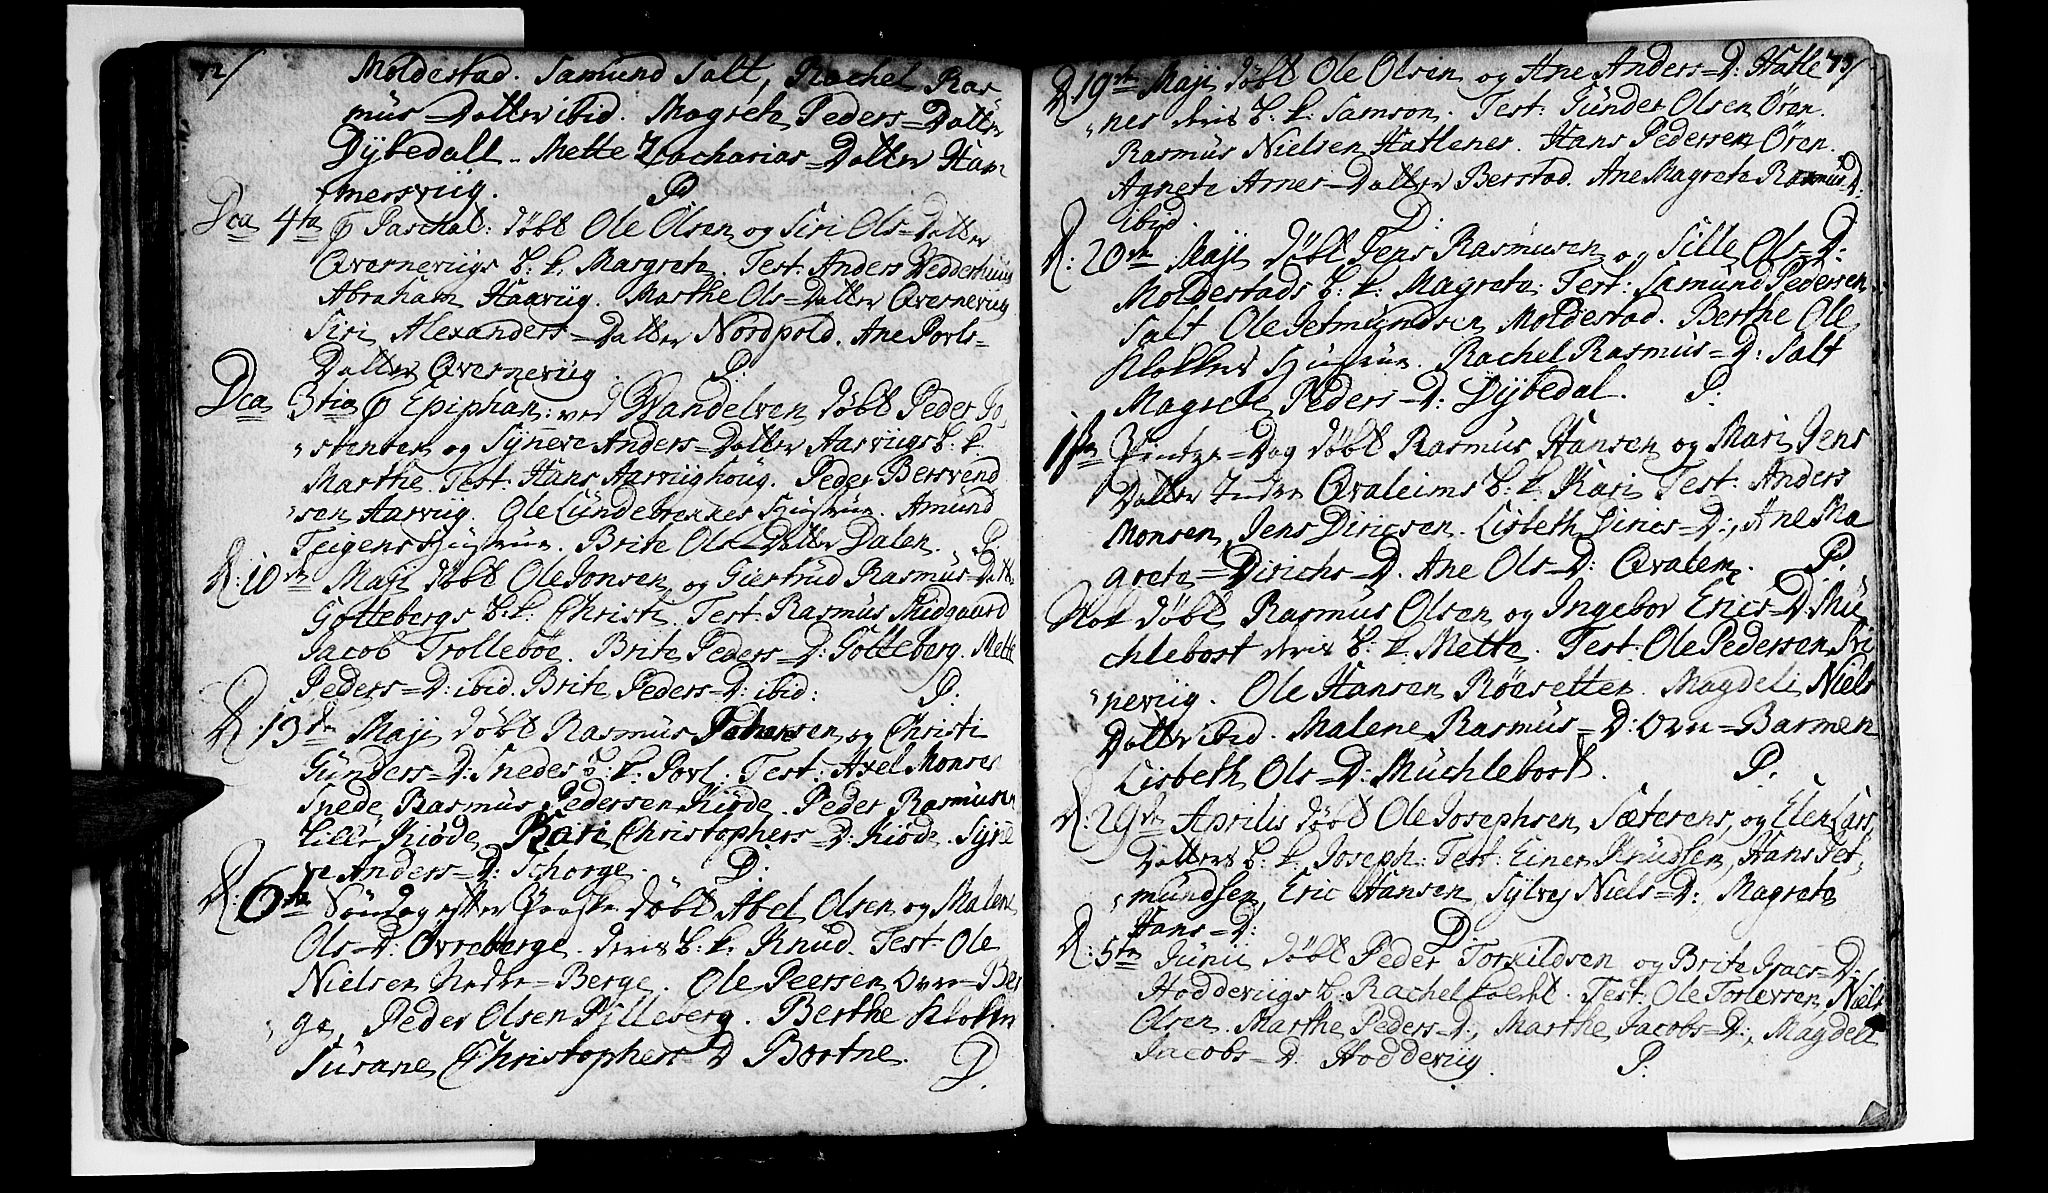 72/
Moldestad. Samund Salt, Rachel Ras
mus=Datter ibid. Magrete Peders=Datter
Dybedall. Mette Zacharias=Datter Ham
mersviig. P
Dca 4ta p Paschat: døbt Ole Olsen og Siri Ols=Datter
Qvernevigs b: k. Margrete. Test: Anders Vedderhuus
Abraham Haaviig. Marthe Ols=Datter Qverneviig
Siri Alexanders=Datter Nordpold. Ane Povls=
Datter Qverneviig. P.
Dca 3tia p Epiphan: ved Vandelven døbt Peder Jo
stensen og Synneve Anders=Datter Aarviigs b: k.
Marthe. Test: Hans Aarviighoug. Peder Bersvend
sen Aarviig. Ole Lundebrekkes Hustrue. Amund
Teigens Hustrue. Brite Ols=Datter Dalen. P
D: 10de Maji døbt Ole Jonsen og Giertrud Rasmus=Datt:
Gottebergs b: k. Christi. Test: Rasmus Midgaard
Jacob Trolleboe. Brite Peders=D: Gotteberg. Mette
Peders=D: ibid. Brite Peders=D: ibid: P.
D: 13de Maji døbt Rasmus Johansen og Christi
Gunders=D: Snedes b: k: Povl: Test: Axel Monsen
Snede, Rasmus Pedersen Kiøde. Peder Rasmusen
Lille Kiøde, Kari Christophers=D: Kiøde. Syne
ve Anders=D: Schorge. P.
D: 6te Søndag efter Paaske døbt Abel Olsen og Malene
Ols=D: Øvreberge. deris b: k. Knud. Test: Ole
Nielsen Nedre=Berge. Ole Peersen Øvre=Ber
ge, Peder Olsen Pylleberg. Berthe Klokk
Susane Christophers=D Bortne. P.
73/
D 19de Maji døbt Ole Olsen og Ane Anders=D: Hatle
nes deris b. k: Samson. Test: Gunder Olsen Ören.
Rasmus Nielsen Hatlenes. Hans Pedersen Ören.
Agnete Arnes=Datter Berstad. Ane Magrete Rasmus D:
ibid. P.
D: 20de Maji døbt Jens Rasmusen og Sille Ols=D:
Moldestads b: k: Magrete. Test: Samund Pedersen
Salt Ole Jetmundsen Moldestad. Berthe Ole
Klokkers Hustrue. Rachel Rasmus=D: Salt
Magrete Peders=D: Dybedal. P:
1ste Pintze=Dag døbt Rasmus Hansen og Mari Jens
Datter Indre Qvaleims b: k. Kari. Test: Anders
Monsen, Jens Diricsen. Lisbeth Dirics=D:, Ane Ma
grete=Dirichs=D. Ane Ols=D: Qvalem. P.
Nok døbt Rasmus Olsen og Ingebor Erics=D: Mu
chlebost deris b: k. Mette. Test: Ole Pedersen Gri
neviig. Ole Hansen Røesetter. Magdeli Niels
Datter ibid. Malene Rasmus=D: Øvre=Barmen
Lisbeth Ols=D: Muchlebost. P.
D: 29de Aprilis døbt Ole Josephsen Sæterens, og Elen Lars
Datters b: k. Joseph: Test: Einer Knudsen, Hans Jet
mundsen, Eric Hansen, Sylvej Niels=D:, Magrete
Hans=D: P.
D: 5te Junii døbt Peder Torkildsen og Brite Isacs=D:
Hodderiigs b: Rachel kaldet. Test: Ole Torlevsen, Niels
Olsen. Marthe Peders=D:, Marthe Jacobs=D:, Magdeli
Jacobs=D: Hodderiig. P: